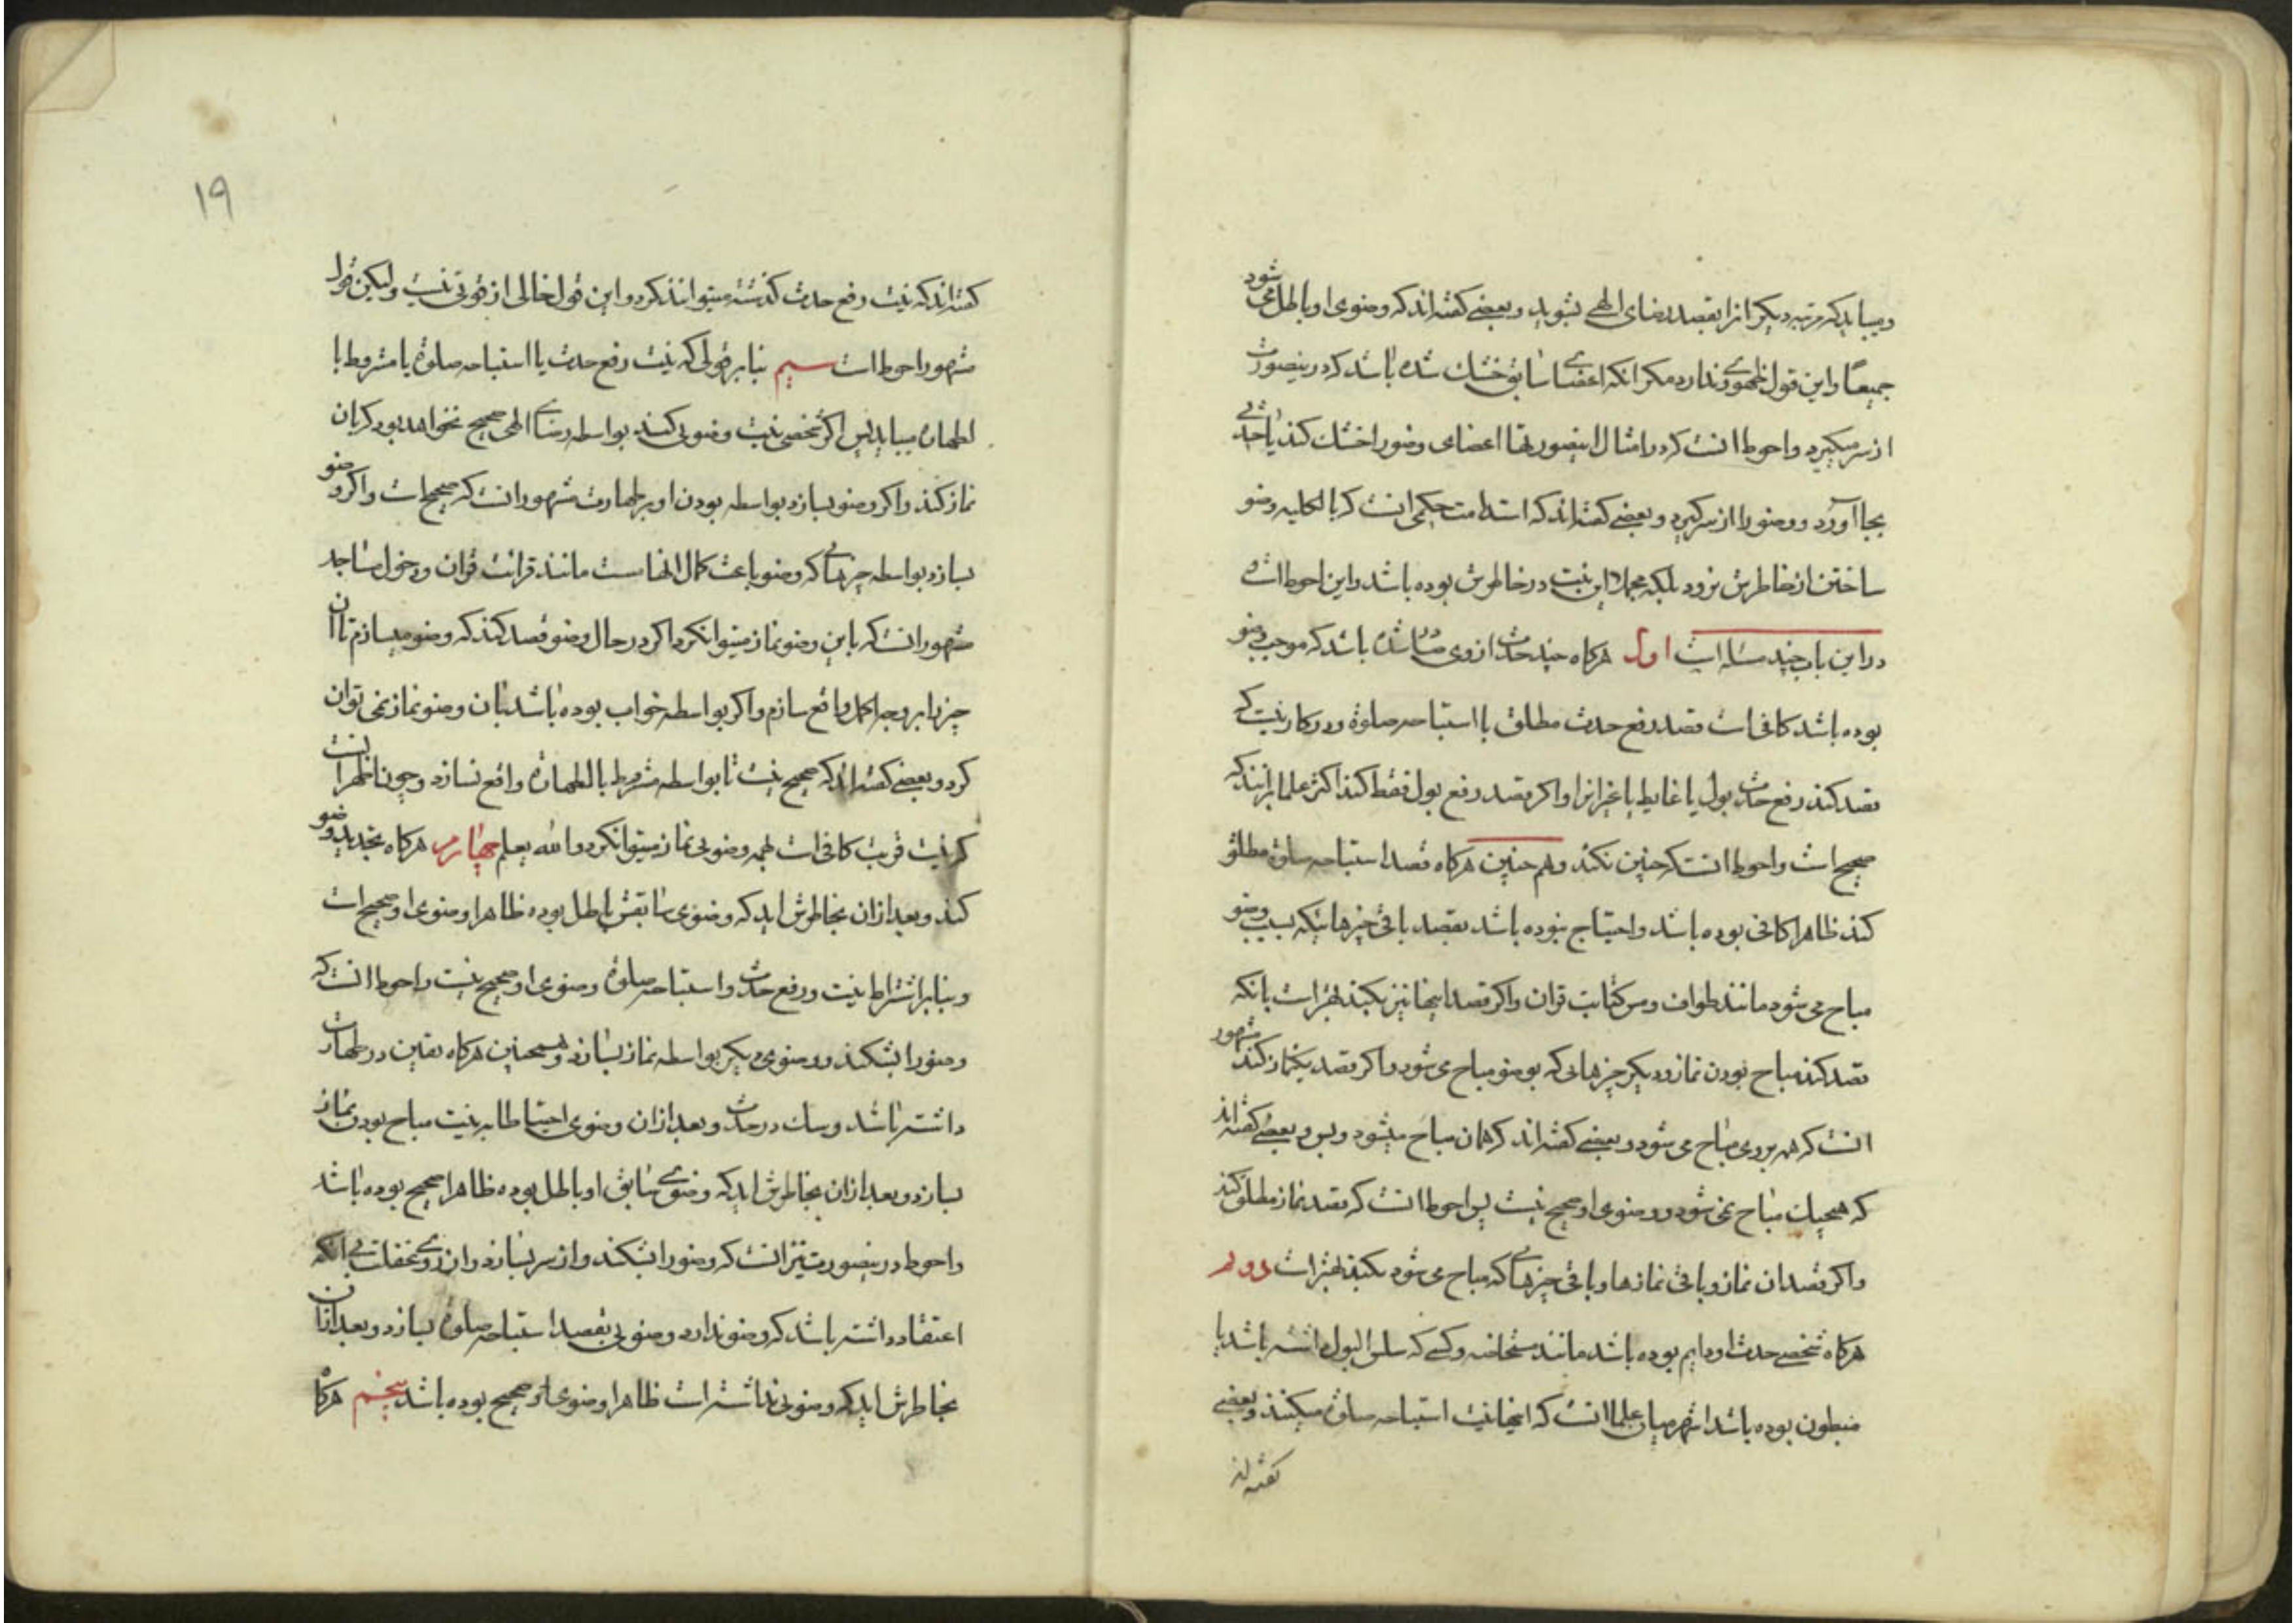 و میباید که مرتبه دیگر انرا بقصد رضای الهی بشوید و بعضی گفته اند که وضوی او باطل می شود
جمیعًا و این قول ظهوری ندارد مکر انکه اعضای سابق خشک شده باشد که درینصورت
از سر میکیرد و احوط انست که در امثال اینصورتها اعضای وضو را خشک کند یا حدثی
بجا آورد و وضو را از سر کیرد و بعضی کفته اند که استدامت حکمی انست که بالکلیه وضو
ساختن از خاطرش نرود بلکه مجملا این نیت در خاطرش بوده باشد و این احوط است
در این باب چند مسئله است اول هرکاه چند حدث از وی صادر شده باشد که موجب وضو
بوده باشد کافی است قصد رفع حدث مطلق یا استباحه صلوة و در کار نیست که
قصد کند رفع حدث بول یا غایط یا غیر انرا و اکر قصد رفع بول فقط کند اکثر علما برانند که
صحیح است و احوط انست که چنین نکند و هم چنین هرکاه قصد استباحه صلوة مطلق
کند ظاهرا کافی بوده باشد و احتیاج نبوده باشد بقصد باقی چیزهائیکه بسبب وضو
مباح می شود مانند طواف و مس کتابت قران و اکر قصد اینها نیز بکند بهتر است بانکه
قصد کند مباح بودن نماز و دیکر چیزهایی که بوضو مباح می شود و اکر قصد یکنماز کند مشهور
انست که همه بر وی مباح می شود و بعضی کفته اند که همان مباح میشود و بس و بعضی کفته اند
که هیچیک مباح نمی شود و وضوی او صحیح نیست پس احوط انست که قصد نماز مطلق کند
و اکر قصد ان نماز و باقی نمازها و باقی چیزهایی که مباح می شود بکند بهتر است دوم
هرکاه شخصی حدث او دایم بوده باشد مانند مستحاضه و کسی که سلس البول داشته باشد یا
مبطون بوده باشد اشهر میان علما انست که اینها نیت استباحه صلوة میکنند و بعضی
کفته اند
۱۹
کفته اند که نیت رفع حدث کذشته میتوانند کرد و این قول خالی از قوتی نیست ولیکن قول
مشهور احوط است سیم بنا بر قولی که نیت رفع حدث یا استباحه صلوة یا مشروط با
لطهاره میباید پس اکر شخصی نیت وضویی کند بواسطه رضای الهی صحیح نخواهد بود که بان
نماز کند و اکر وضو بسازد بواسطه بودن او بر طهارت مشهور انست که صحیح است و اکر وضو
بسازد بواسطه چیزهایی که وضو باعث کمال انهاست مانند قرائت قران و دخول مساجد
مشهور انست که باین وضو نماز میتوانکرد اکر در حال وضو قصد کند که وضو میسازم تا ان
چیز را بر وجه اکمل واقع سازم و اکر بواسطه خواب بوده باشد بان وضو نماز نمی توان
کرد و بعضی کفته اند که صحیح نیست تا بواسطه مشروط بالطهاره واقع نسازد و چون اظهر انست
که نیت قربت کافی است بهمه وضویی نماز میتوانکرد والله یعلم چهارم هرکاه تجدید وضو
کند و بعد ازان بخاطرش اید که وضوی سابقش باطل بوده ظاهرا وضوی او صحیح است
و بنابر اشتراط نیت و رفع حدث و استباحه صلوة وضوی او صحیح نیست و احوط انست که
وضو را بشکند و وضوی دیکر بواسطه نماز بسازد و همچنین هرکاه یقین در طهارت
داشته باشد و شک در حدث و بعد ازان وضوی احتیاطا به نیت مباح بودن نماز
بسازد و بعد ازان بخاطرش اید که وضوی سابق او باطل بوده ظاهرا صحیح بوده باشد
و احوط درینصورت نیز انست که وضو را بشکند و از سر بسازد و از روی غفلت بی انکه
اعتقاد داشته باشد که وضو ندارد وضویی بقصد استباحه صلوة بسازد و بعد ازان
بخاطرش اید که وضویی نداشته است ظاهرا وضوی او صحیح بوده باشد پنجم هرکاه